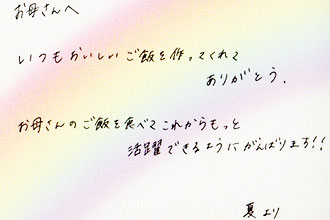 お母さんへ
いつもおいしいご飯を作ってくれて
ありがとう.
お母さんのご飯を食べてこれからもっと
活躍できるようにがんばります!!
夏より